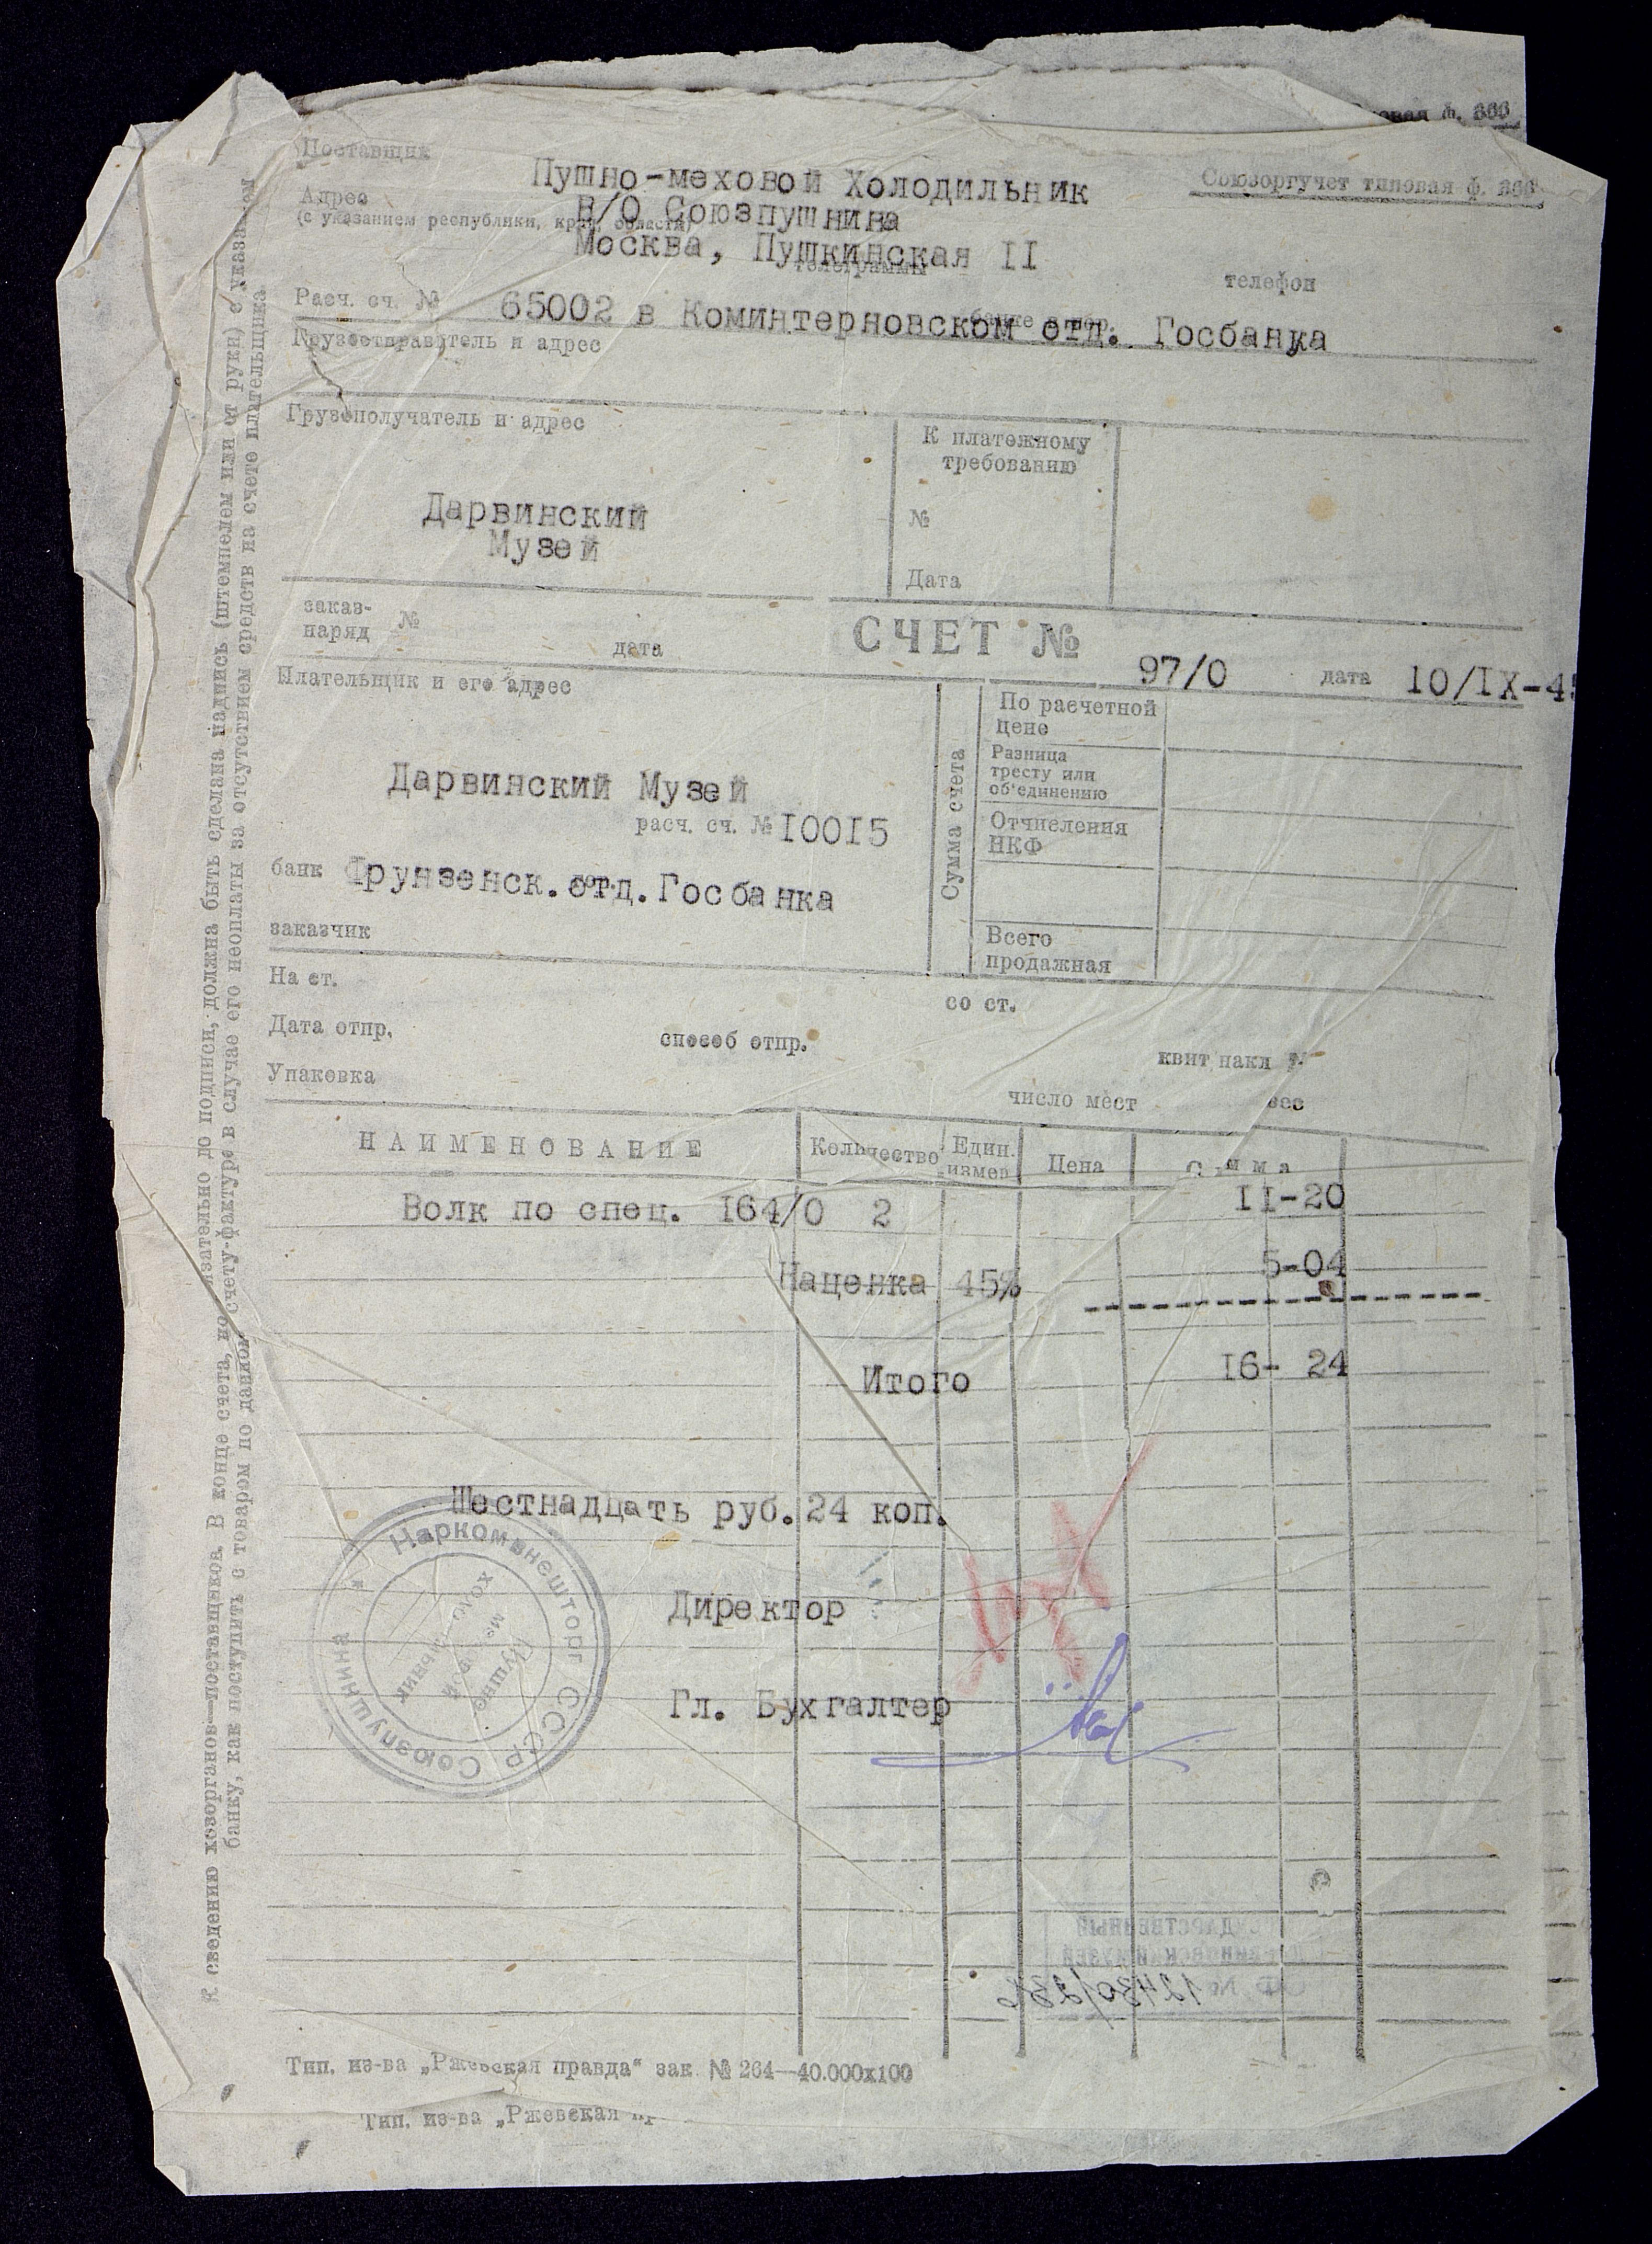 Союзоргучет типовая ф. 366
Поставщик
Пушно-меховой Холодильник
Адрес
В/О Союзпушнина
(с указанием республики, края, области)
Москва, Пушкинская II
телеграммы
телефон
Расч. сч. № 65002 в Коминтерновском отд. Госбанка
Грузоотправитель и адрес
Грузополучатель и адрес
К платежному
требованию
№
Дата
Дарвинский
Музей
заказ-
наряд №
дата
СЧЕТ № 97/0 дата 10/IX-4
Плательщик и его адрес
Дарвинский Музей
расч. сч. № I00I5
банк Фрунзенск. отд. Госбанка
заказчик
Сумма счета
По расчетной
цене
Разница
тресту или
об'единению
Отчисления
НКФ
Всего
продажная
На ст.
со ст.
Дата отпр.
способ отпр.
квит накл
Упаковка
число мест
вес
НАИМЕНОВАНИЕ Количество Един. измер. Цена Сумма
Волк по спец. I64/0 2 II-20
Наценка 45% 5-04
Итого I6- 24
Шестнадцать руб. 24 коп.
Директор
Гл. Бухгалтер
Наркомвнешторг СССР Союзпушнина
Пушно
меховой
холодильник
ГОСУДАРСТВЕННЫЙ
ДАРВИНОВСКИЙ МУЗЕЙ
Тип. из-ва „Ржевская правда“ зак № 264—40.000х100
Тип. из-ва „Ржевская пр
К сведению хозорганов—поставщиков В конце счета, обязательно до подписи, должна быть сделана надпись (штемпелем или от руки) с указанием
банку, как поступить с товаром по данному счету-фактуре в случае его неоплаты за отсутствием средств на счете плательщика